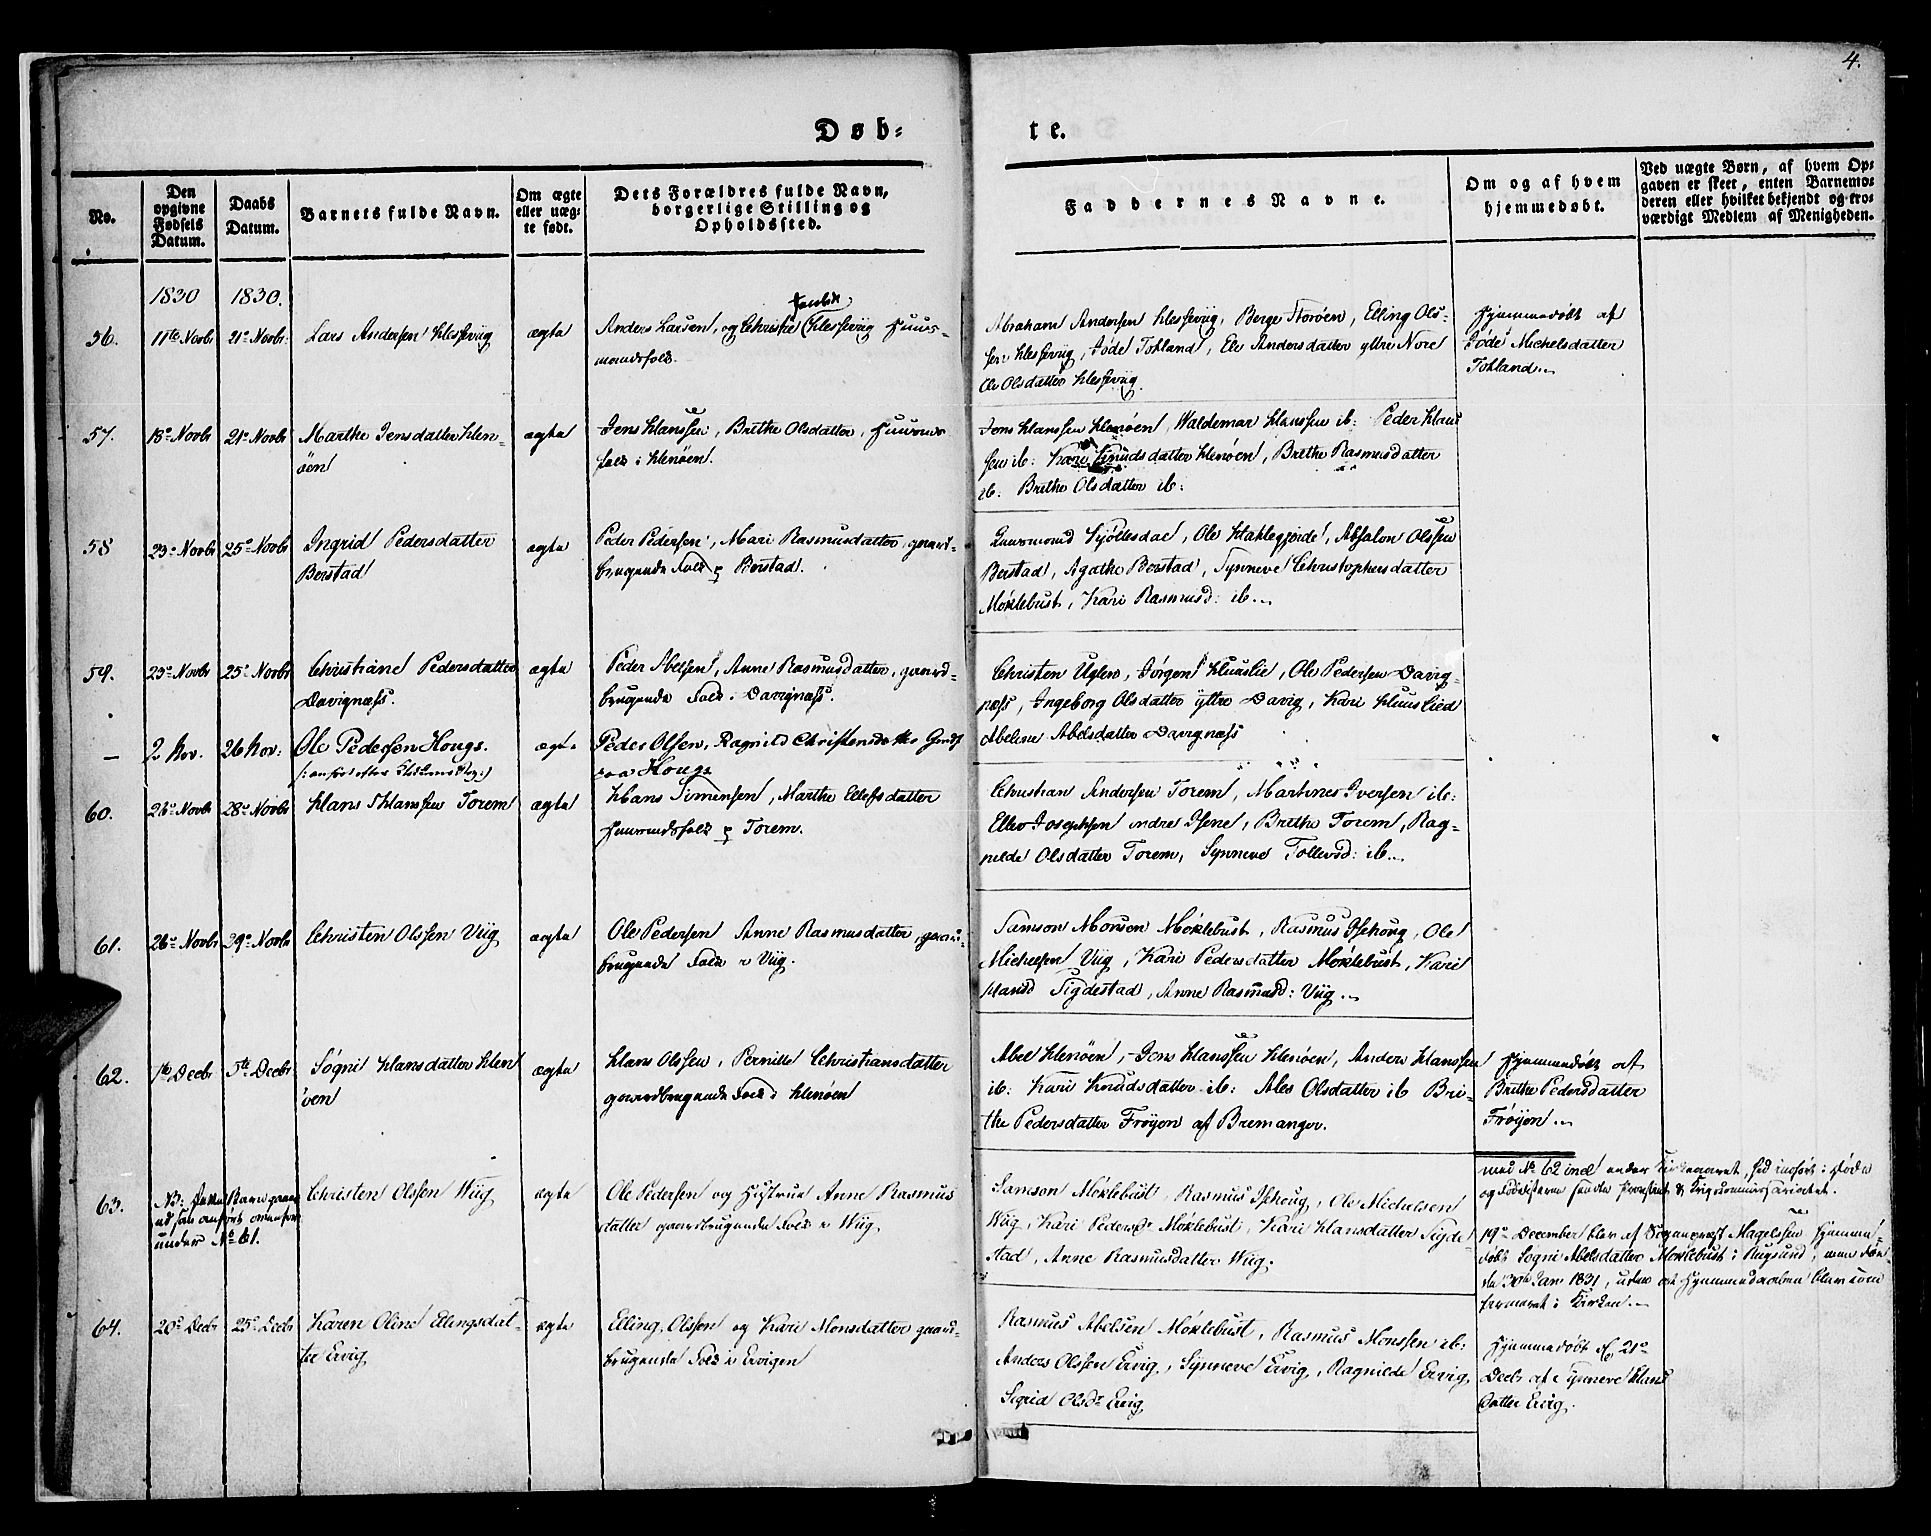 4.
Døb-
te.
No.
Den opgivne Fødsels Datum.
Daabs Datum.
Barnets fulde Navn.
Om ægte eller uægte født.
Dets Forældres fulde Navn, borgerlige Stilling og Opholdssted.
Faddernes Navne.
Om og af hvem hjemmedøbt.
Ved uægte Børn, af hvem Opgaven er skeet, enten Barnemoderen eller hvilket bekjendt og troværdigt Medlem af Menigheden.
1830 1830.
56. 11te Novbr 21de Novbr: Lars Andersen Hessevig ægte
Anders Larsen, og Christie Hessevig Huus-
mandsfolk.
Abraham Andersen Hessevig, Berge Storøen, Elling Ols-
sen Hessevig, Jøde Tokland, Ele Andersdatter yttre Nore
Ole Olsdatter Hessevig
Hjemmedøbt af
Jøde Michelsdatter
Tokland
57. 18de Novbr 21de Novbr Marthe Jensdatter Hen-
øen ægte
Jens Hanssen, Brethe Olsdatter, Huusmds
folk i Henøen.
Jens Hanssen Henøen, Waldemar Hanssen ib: Peder Hans
sen ib: Kari Knudsdatter Henøen, Brethe Rasmusdatter
ib: Brethe Olsdatter ib:
58 23de Novbr 25de Novbr Ingrid Pedersdatter
Berstad ægte
Peder Pedersen, Mari Rasmusdatter, gaard-
brugende Folk p Berstad.
Guurmand Hjøllesdal, Ole Haklegjerde, Absalon Olssen
Berstad, Agathe Berstad, Synneve Christophersdatter
Møklebust, Kari Rasmusd: ib
59. 23de Novbr 25de Novbr Christiane Pedersdatter
Davignæss. ægte
Peder Abelsen, Anne Rasmusdatter, gaard-
brugende Folk i Davignæss.
Christen Uglen, Jørgen Huuslie, Ole Pedersen Davig-
næss, Ingeborg Olsdatter yttre Davig, Kari Huuslied
Abeline Abelsdatter Davignæss
— 2 Nov. 26 Nov: Ole Pedersen Hougs. ægte
Peder Olsen, Ragnild Christensdatter
Houge
60. 26de Novbr 28de Novbr Hans Hanssen Torem ægte
Hans Simensen, Marthe Ellefsdatter
Huusmdsfolk p Torem.
Christian Andersen Torem, Martines Iversen ib:
Ellev Josephsen indre Isene, Brethe Torem, Rag-
nelde Olsdatter Torem, Synneve Tollevsd: ib
61. 26de Novbr 29de Novbr Christen Olssen Viig ægte
Ole Pedersen Anne Rasmusdatter, gaard-
brugende Folk i Viig.
Samson Monsen Møklebust, Rasmus Isehoug, Ole
Michelsen Viig, Kari Pedersdatter Møklebust, Kari
Hansd Sigdestad, Anne Rasmusd: Viig
62. 1te Decbr 5te Decbr Søgni Hansdatter Hen
øen ægte
Hans Olssen, Pernille Christiansdatter
gaardbrugende Folk i Henøen
Abel Henøen, Jens Hanssen Henøen, Anders Hanssen
ib: Kari Knudsdatter ib: Ales Olsdatter ib Bri-
the Pedersdatter Frøyen af Bremanger.
Hjemmedøbt af
Brethe Pedersdatter
Frøyen
63. NB: dette Barn
anført ovenfor
under No 61.
Christen Olssen Wiig ægte
Ole Pedersen og Hustrue Anne Rasmus
datter gaardbrugende Folk i Wiig
Samson Møklebust, Rasmus Isehoug, Ole Michelsen
Wiig, Kari Pedersdr Møklebust, Kari Hansdatter Sigde-
stad, Anne Rasmusdatter Wiig.
med No 62 indl under
19de December blev af Sogneprest Magelssen hjemme-
døbt Sogni Abelsdatter Møklebust i Rugsund, men dø-
de 30te Jan 1831, uden at Hjemmedaaben blev con
firmeret i Kirken
64. 20de Decbr 25de Decbr Karen Oline Ellingsdat-
ter Ervig ægte
Elling Olsson og Kari Monsdatter gaard-
brugende Folk i Ervigen
Rasmus Abelsen Møklebust, Rasmus Monssen ib:
Anders Olssen Ervig, Synneve Ervig, Ragnilde Ervig
Sigrid Olsdr Ervig
Hjemmedøbt d. 21de
Decbr af Synneve Hans
Datter Ervig.